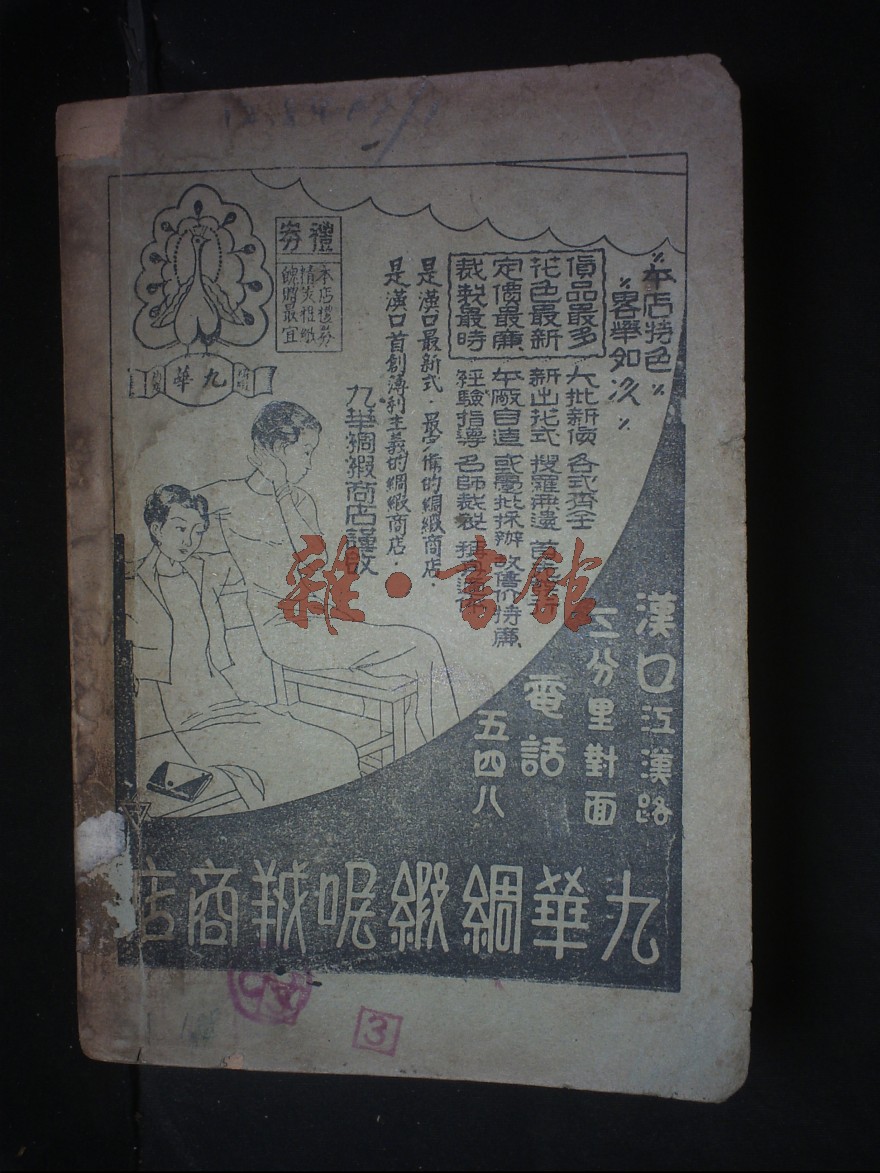 本店特色
畧舉如次
貨品最多 大批新貨 各式齊全
花色最新 新出花式 搜羅無遺
定價最廉 本廠自造 或疊批採辦 故售價特廉
裁製最時 經驗指導 名師裁製
是漢口最新式·最完備的綢緞商店·
是漢口首創薄利主義的綢緞商店·
九華綢緞商店謹啟
禮券
本店禮券
精美禮紙
餽贈最宜
九華
漢口江漢路
三分里對面
電話
五四八
九華綢緞呢羢商店
雜·書館
3